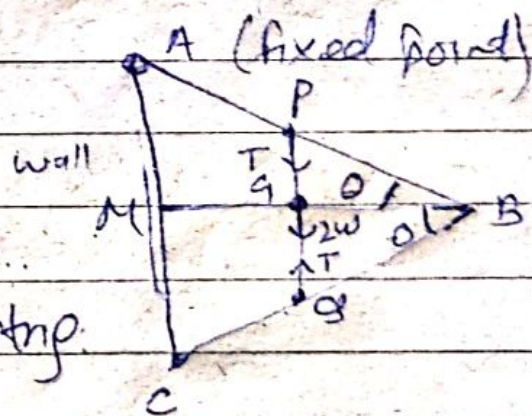 A (fixed point)
P
wall
T
G θ
M B
2W θ
T
Q
C